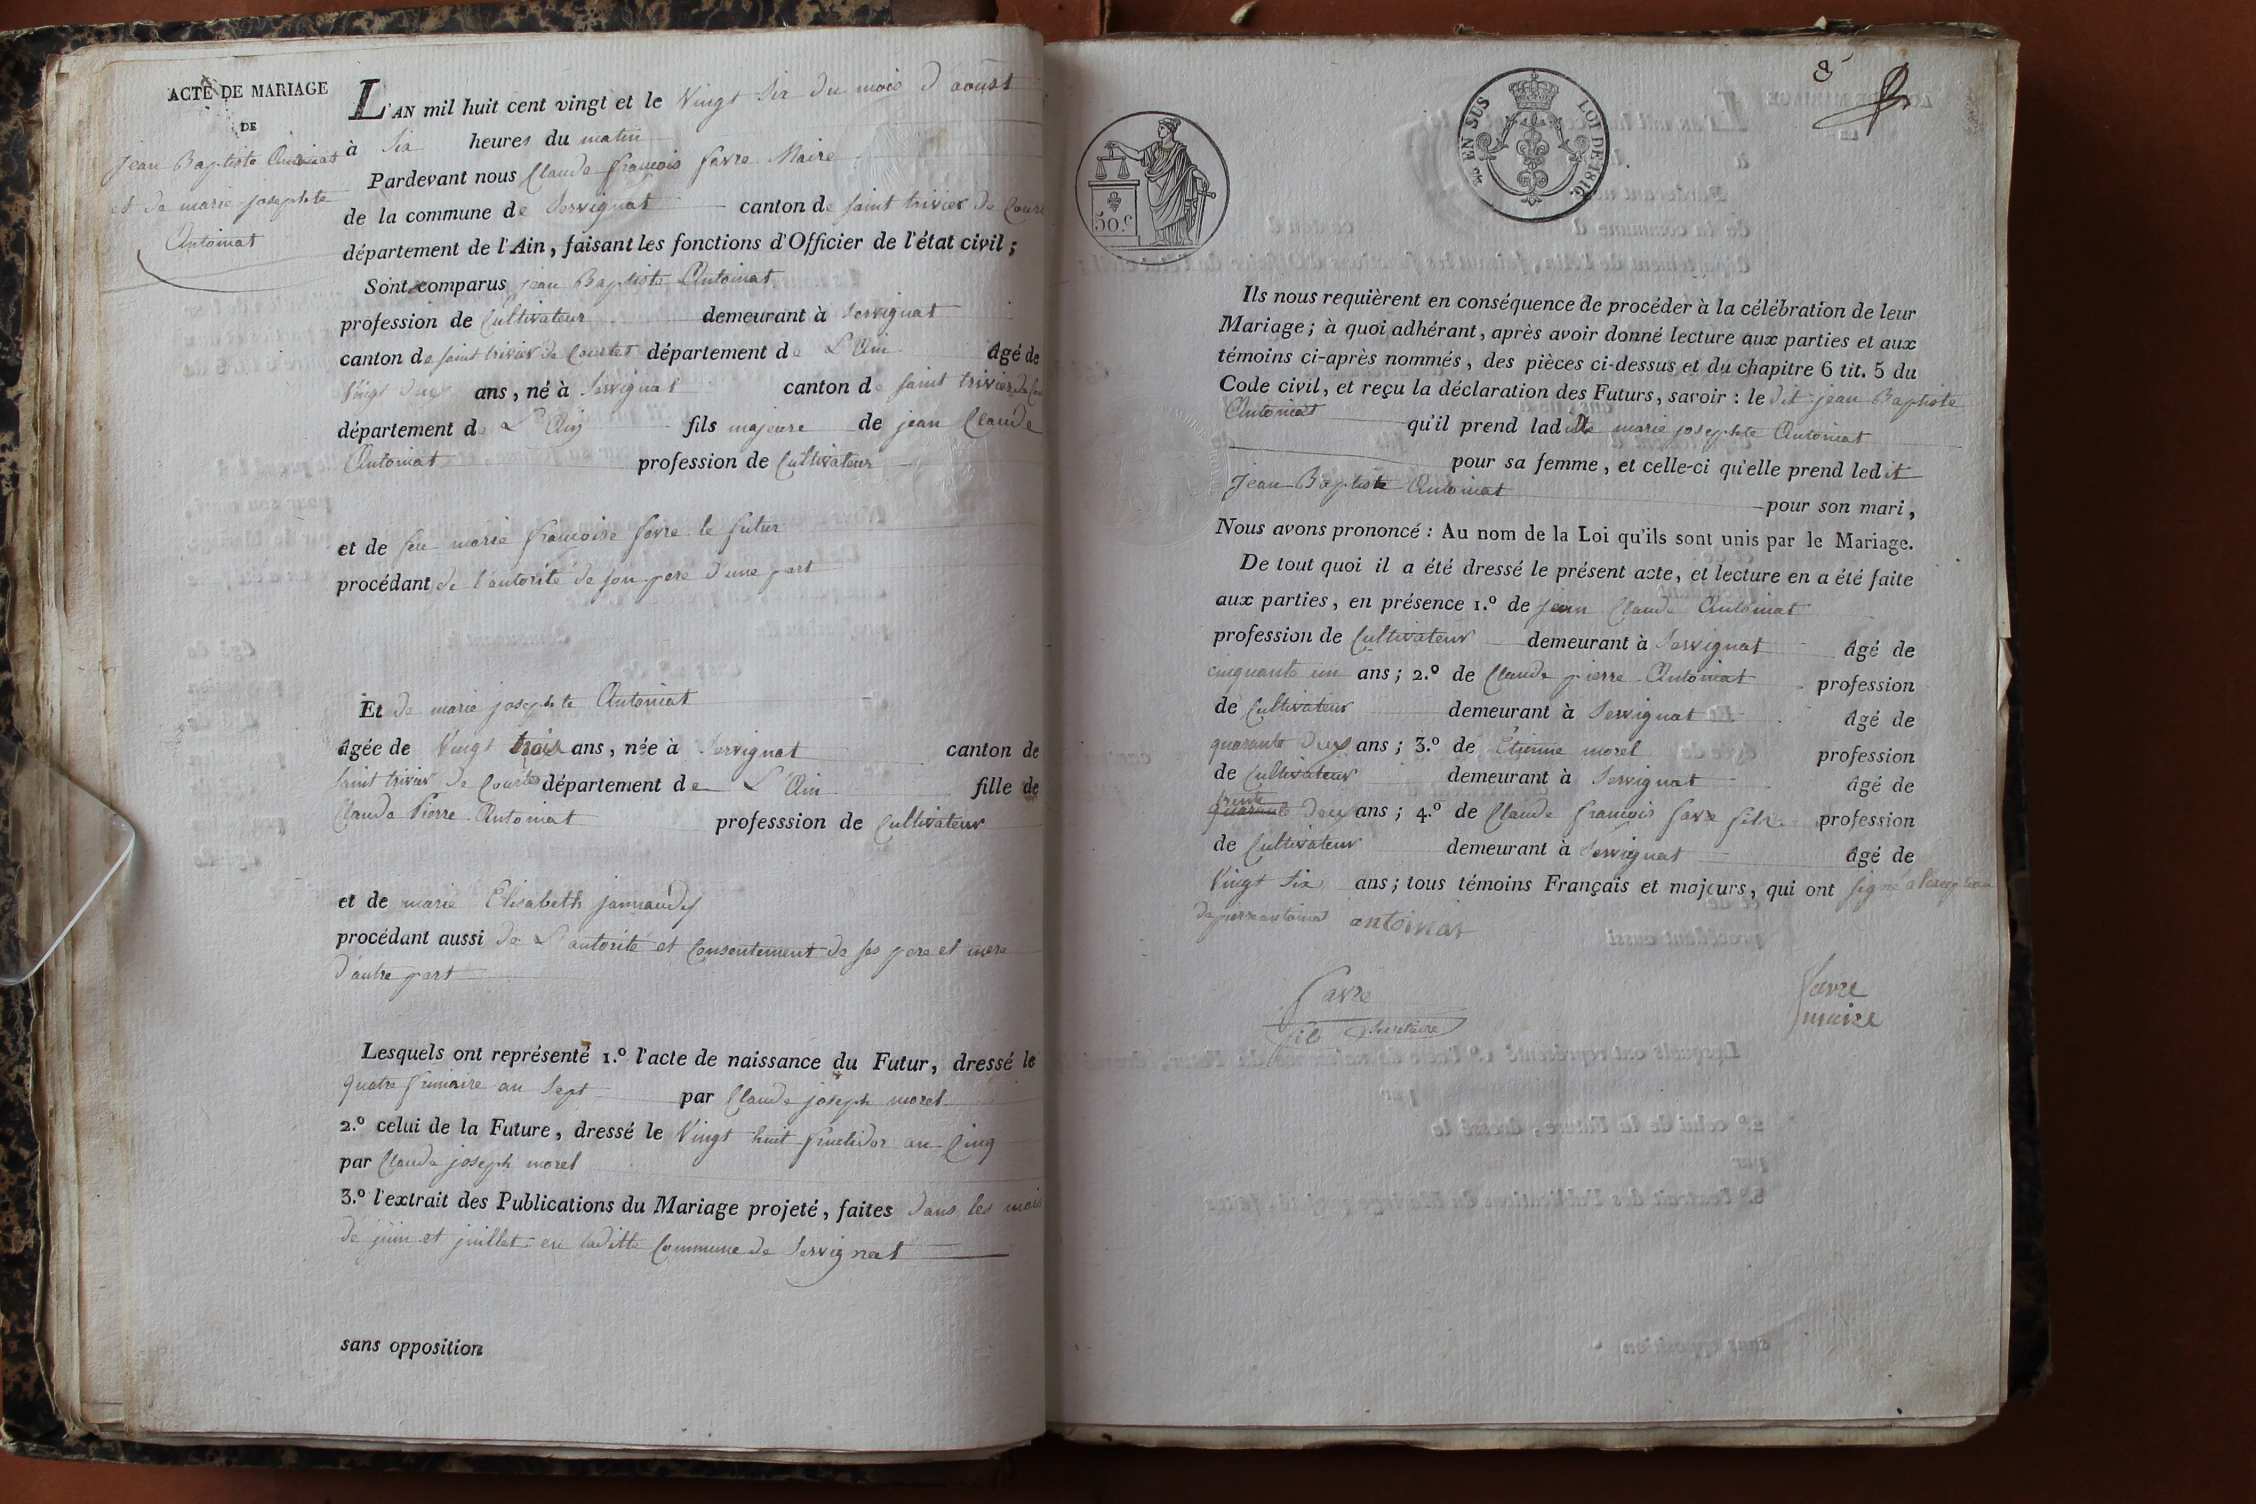 ACTE DE MARIAGE
DE
Jean Baptiste Antoinat
et de marie josephte
Antoinat
L'AN mil huit cent vingt et le Vingt Six du mois d'aoust
à Six heures du matin
Pardevant nous Claude françois favre Maire
de la commune de Servignat canton de saint trivier de Cour
département de l'Ain, faisant les fonctions d'Officier de l'état civil;
Sont comparus jean Baptiste Antoinat
profession de Cultivateur demeurant à Servignat
canton de saint trivier de Courtes département de L'Ain âgé de
Vingt deux ans, né à Servignat canton de saint trivier de Cou
département de L'Ain fils majeure de jean Claude
Antoinat profession de Cultivateur
et de feu marie françoise favre le futur
procédant de l'autorité de son pere d'une part
Et de marie josephte Antoinat
âgée de Vingt trois ans, née à Servignat canton de
saint trivier de Courtes département de L'Ain fille de
Claude Pierre Antoinat professsion de Cultivateur
et de marie Elisabeth
procédant aussi de L'autorité et Consentement de ses pere et mere
d'autre part
Lesquels ont représenté 1.º l'acte de naissance du Futur, dressé le
quatre frimaire an Sept par Claude joseph morel
2.º celui de la Future, dressé le Vingt huit fructidor an Cinq
par Claude joseph morel
3.º l'extrait des Publications du Mariage projeté, faites dans les mois
de juin et juillet en laditte Commune de Servignat
sans opposition
8
50.c
EN SUS
LOI DE 1816.
Ils nous requièrent en conséquence de procéder à la célébration de leur
Mariage; à quoi adhérant, après avoir donné lecture aux parties et aux
témoins ci-après nommés, des pièces ci-dessus et du chapitre 6 tit. 5 du
Code civil, et reçu la déclaration des Futurs, savoir : le dit jean Baptiste
Antoinat qu'il prend laditte marie josephte Antoinat
pour sa femme, et celle-ci qu'elle prend ledit
Jean Baptiste Antoinat pour son mari,
Nous avons prononcé : Au nom de la Loi qu'ils sont unis par le Mariage.
De tout quoi il a été dressé le présent acte, et lecture en a été faite
aux parties, en présence 1.º de jean Claude Antoinat
profession de Cultivateur demeurant à Servignat âgé de
cinquante un ans; 2.º de Claude pierre Antoinat profession
de Cultivateur demeurant à Servignat âgé de
quarante deux ans; 3.º de Etienne morel profession
de Cultivateur demeurant à Servignat âgé de
trente
quarante deux ans; 4.º de Claude françois favre fils profession
de Cultivateur demeurant à Servignat âgé de
Vingt Six ans; tous témoins Français et majeurs, qui ont signé a l'exception
de pierre antoinat antoinat
favre
fils Secretaire
favre
maire